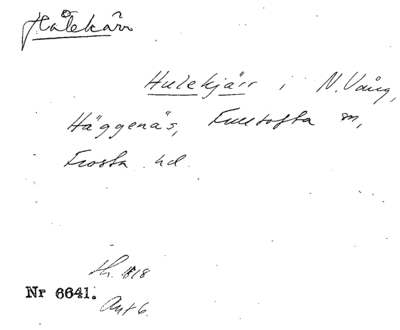 Hålekärr
Hulekjärr i N. Vång,
Häggenäs, Fulltofta m,
Frosta hd.
1818
Nr 6641.
Ant 6.